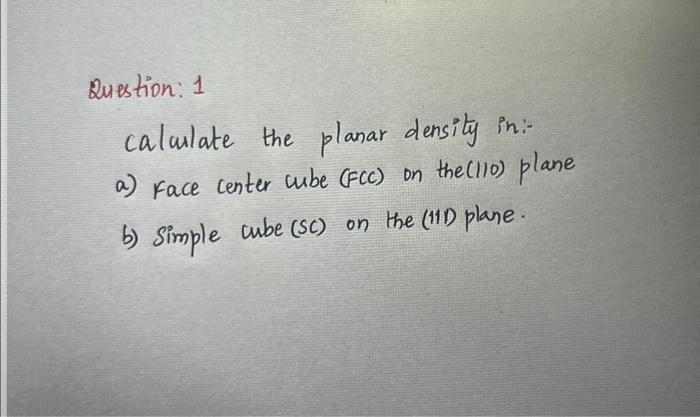 Question: 1
calculate the planar density in:-
a) Face center cube (FCC) on the (110) plane
b) Simple cube (SC) on the (111) plane.